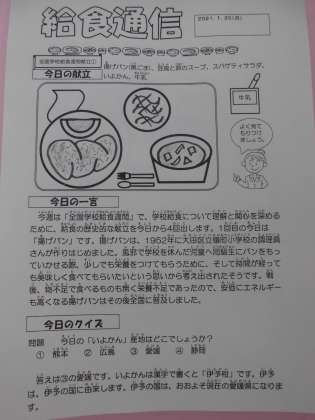 給食通信
2021.1.25(月)
全国学校給食週間献立①
今日の献立
揚げパン(黒ごま)、豆腐と卵のスープ、スパゲティサラダ、
いよかん、牛乳
牛乳
よく見て
もりつけ
ましょう。
今日の一言
今週は「全国学校給食週間」で、学校給食について理解と関心を深める
ために、給食の歴史的な献立を今日から4回出します。1回目の今日は
「揚げパン」です。揚げパンは、1952年に大田区立嶺町小学校の調理員
さんが作りはじめました。風邪で学校を休んだ児童へ同級生にパンをもっ
ていかせる際、少しでも栄養をつけてもらうために、そして時間が経って
も美味しく食べてもらいたいという思いから考え出されたそうです。戦
後、物不足で食べるものも無く栄養不足であったので、安価にエネルギー
も高くなる揚げパンはその後全国に普及しました。
今日のクイズ
問題 今日の「いよかん」産地はどこでしょうか?
① 熊本 ② 広島 ③ 愛媛 ④ 静岡
答えは③の愛媛です。いよかんは漢字で書くと「伊予柑」です。伊予
は、伊予の国に由来します。伊予の国は、おおよそ現在の愛媛県になりま
す。